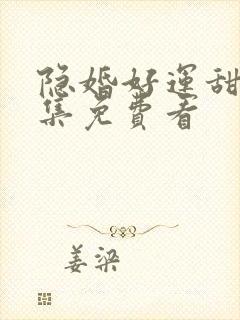 隐婚好运甜
集免费看
姜梁